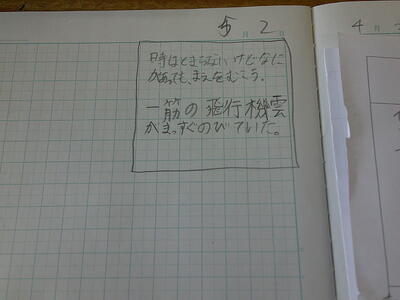 5月2日
時はとまらないけどなに
があっても、まえをむこう。
一筋の飛行機雲
がまっすぐのびていた。
4月